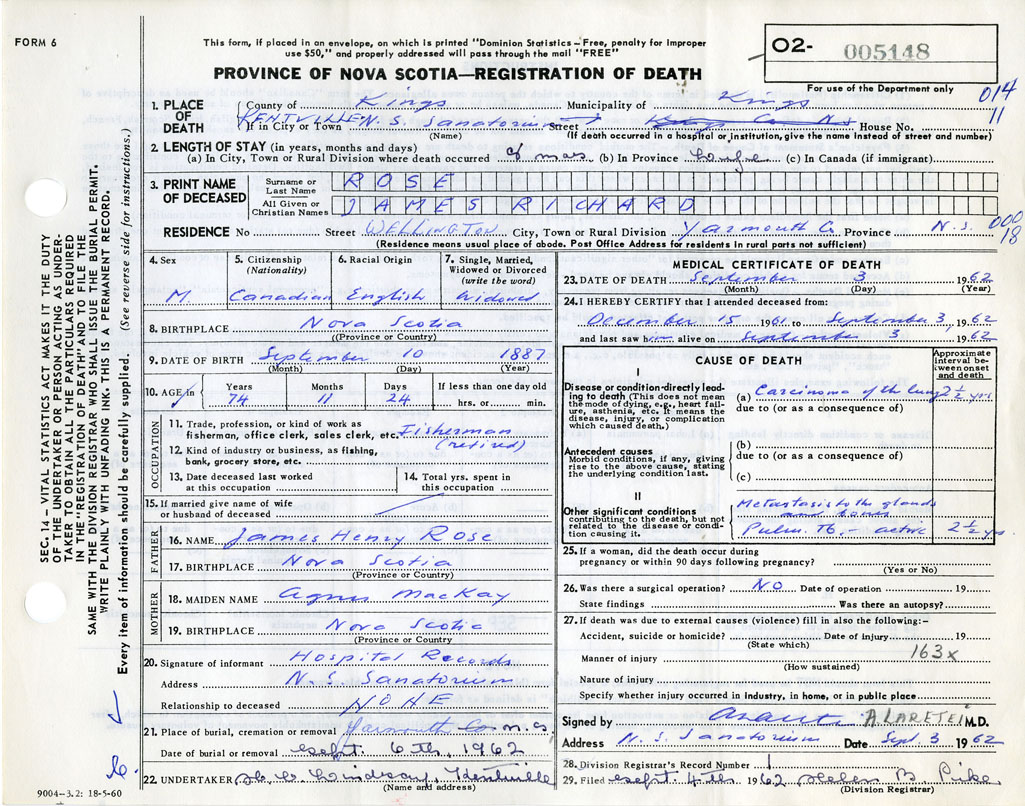 FORM 6
This form, if placed in an envelope, on which is printed "Dominion Statistics – Free, penalty for improper
use $50," and properly addressed will pass through the mail "FREE"
PROVINCE OF NOVA SCOTIA—REGISTRATION OF DEATH
O2- 005148
For use of the Department only
014
11
1. PLACE OF DEATH County of Kings Municipality of Kings
KENTVILLE N. S. Sanatorium Street Kings Co N.S. House No.
If in City or Town (Name) (If death occurred in a hospital or institution, give the name instead of street and number)
2. LENGTH OF STAY (in years, months and days)
(a) In City, Town or Rural Division where death occurred 9 mos (b) In Province Life (c) In Canada (if immigrant)
3. PRINT NAME OF DECEASED
Surname or Last Name ROSE
All Given or Christian Names JAMES RICHARD
RESIDENCE No Street WELLINGTON City, Town or Rural Division Yarmouth Co. Province N.S.
000
18
(Residence means usual place of abode. Post Office Address for residents in rural parts not sufficient)
4. Sex M
5. Citizenship (Nationality) Canadian
6. Racial Origin English
7. Single, Married, Widowed or Divorced (write the word) Widowed
8. BIRTHPLACE Nova Scotia
(Province or Country)
9. DATE OF BIRTH September 10 1887
(Month) (Day) (Year)
10. AGE Years 74 Months 11 Days 24 If less than one day old hrs. or min.
OCCUPATION
11. Trade, profession, or kind of work as
fisherman, office clerk, sales clerk, etc. Fisherman
(retired)
12. Kind of industry or business, as fishing,
bank, grocery store, etc.
13. Date deceased last worked at this occupation
14. Total yrs. spent in this occupation
15. If married give name of wife
or husband of deceased
FATHER
16. NAME James Henry Rose
17. BIRTHPLACE Nova Scotia
(Province or Country)
MOTHER
18. MAIDEN NAME Agnes MacKay
19. BIRTHPLACE Nova Scotia
(Province or Country)
20. Signature of informant Hospital Records
Address N. S. Sanatorium
Relationship to deceased NONE
21. Place of burial, cremation or removal Yarmouth Co N.S.
Date of burial or removal Sept. 6th, 1962
22. UNDERTAKER Lindsay, Kentville
(Name and address)
MEDICAL CERTIFICATE OF DEATH
23. DATE OF DEATH September 3 1962
(Month) (Day) (Year)
24. I HEREBY CERTIFY that I attended deceased from:
December 15 1961 to September 3, 1962
and last saw him alive on September 3 1962
CAUSE OF DEATH
Approximate interval between onset and death
I
Disease or condition directly leading to death (This does not mean the mode of dying, e.g., heart failure, asthenia, etc. It means the disease, injury, or complication which caused death.)
(a) Carcinoma of the lung 2½ yrs
due to (or as a consequence of)
Antecedent causes
Morbid conditions, if any, giving rise to the above cause, stating the underlying condition last.
(b)
due to (or as a consequence of)
(c)
II
Other significant conditions
contributing to the death, but not related to the disease or condition causing it.
Metastasis to the glands
and bones
Pulm. TB, - active 2½ yrs
25. If a woman, did the death occur during
pregnancy or within 90 days following pregnancy?
(Yes or No)
26. Was there a surgical operation? NO Date of operation 19
State findings Was there an autopsy?
27. If death was due to external causes (violence) fill in also the following:-
Accident, suicide or homicide? Date of injury 19
(State which)
163x
Manner of injury
(How sustained)
Nature of injury
Specify whether injury occurred in industry, in home, or in public place
Signed by A. LARETEI M.D.
Address N. S. Sanatorium Date Sept. 3 1962
28. Division Registrar's Record Number 1
29. Filed Sept. 4th 1962 Helen B. Pike
(Division Registrar)
SEC. 14 – VITAL STATISTICS ACT MAKES IT THE DUTY
OF THE UNDERTAKER OR PERSON ACTING AS UNDER-
TAKER TO OBTAIN ALL THE PARTICULARS REQUIRED
IN THE "REGISTRATION OF DEATH" AND TO FILE THE
SAME WITH THE DIVISION REGISTRAR WHO SHALL ISSUE THE BURIAL PERMIT.
WRITE PLAINLY WITH UNFADING INK. THIS IS A PERMANENT RECORD.
Every item of information should be carefully supplied. (See reverse side for instructions.)
9004–3.2: 18-5-60